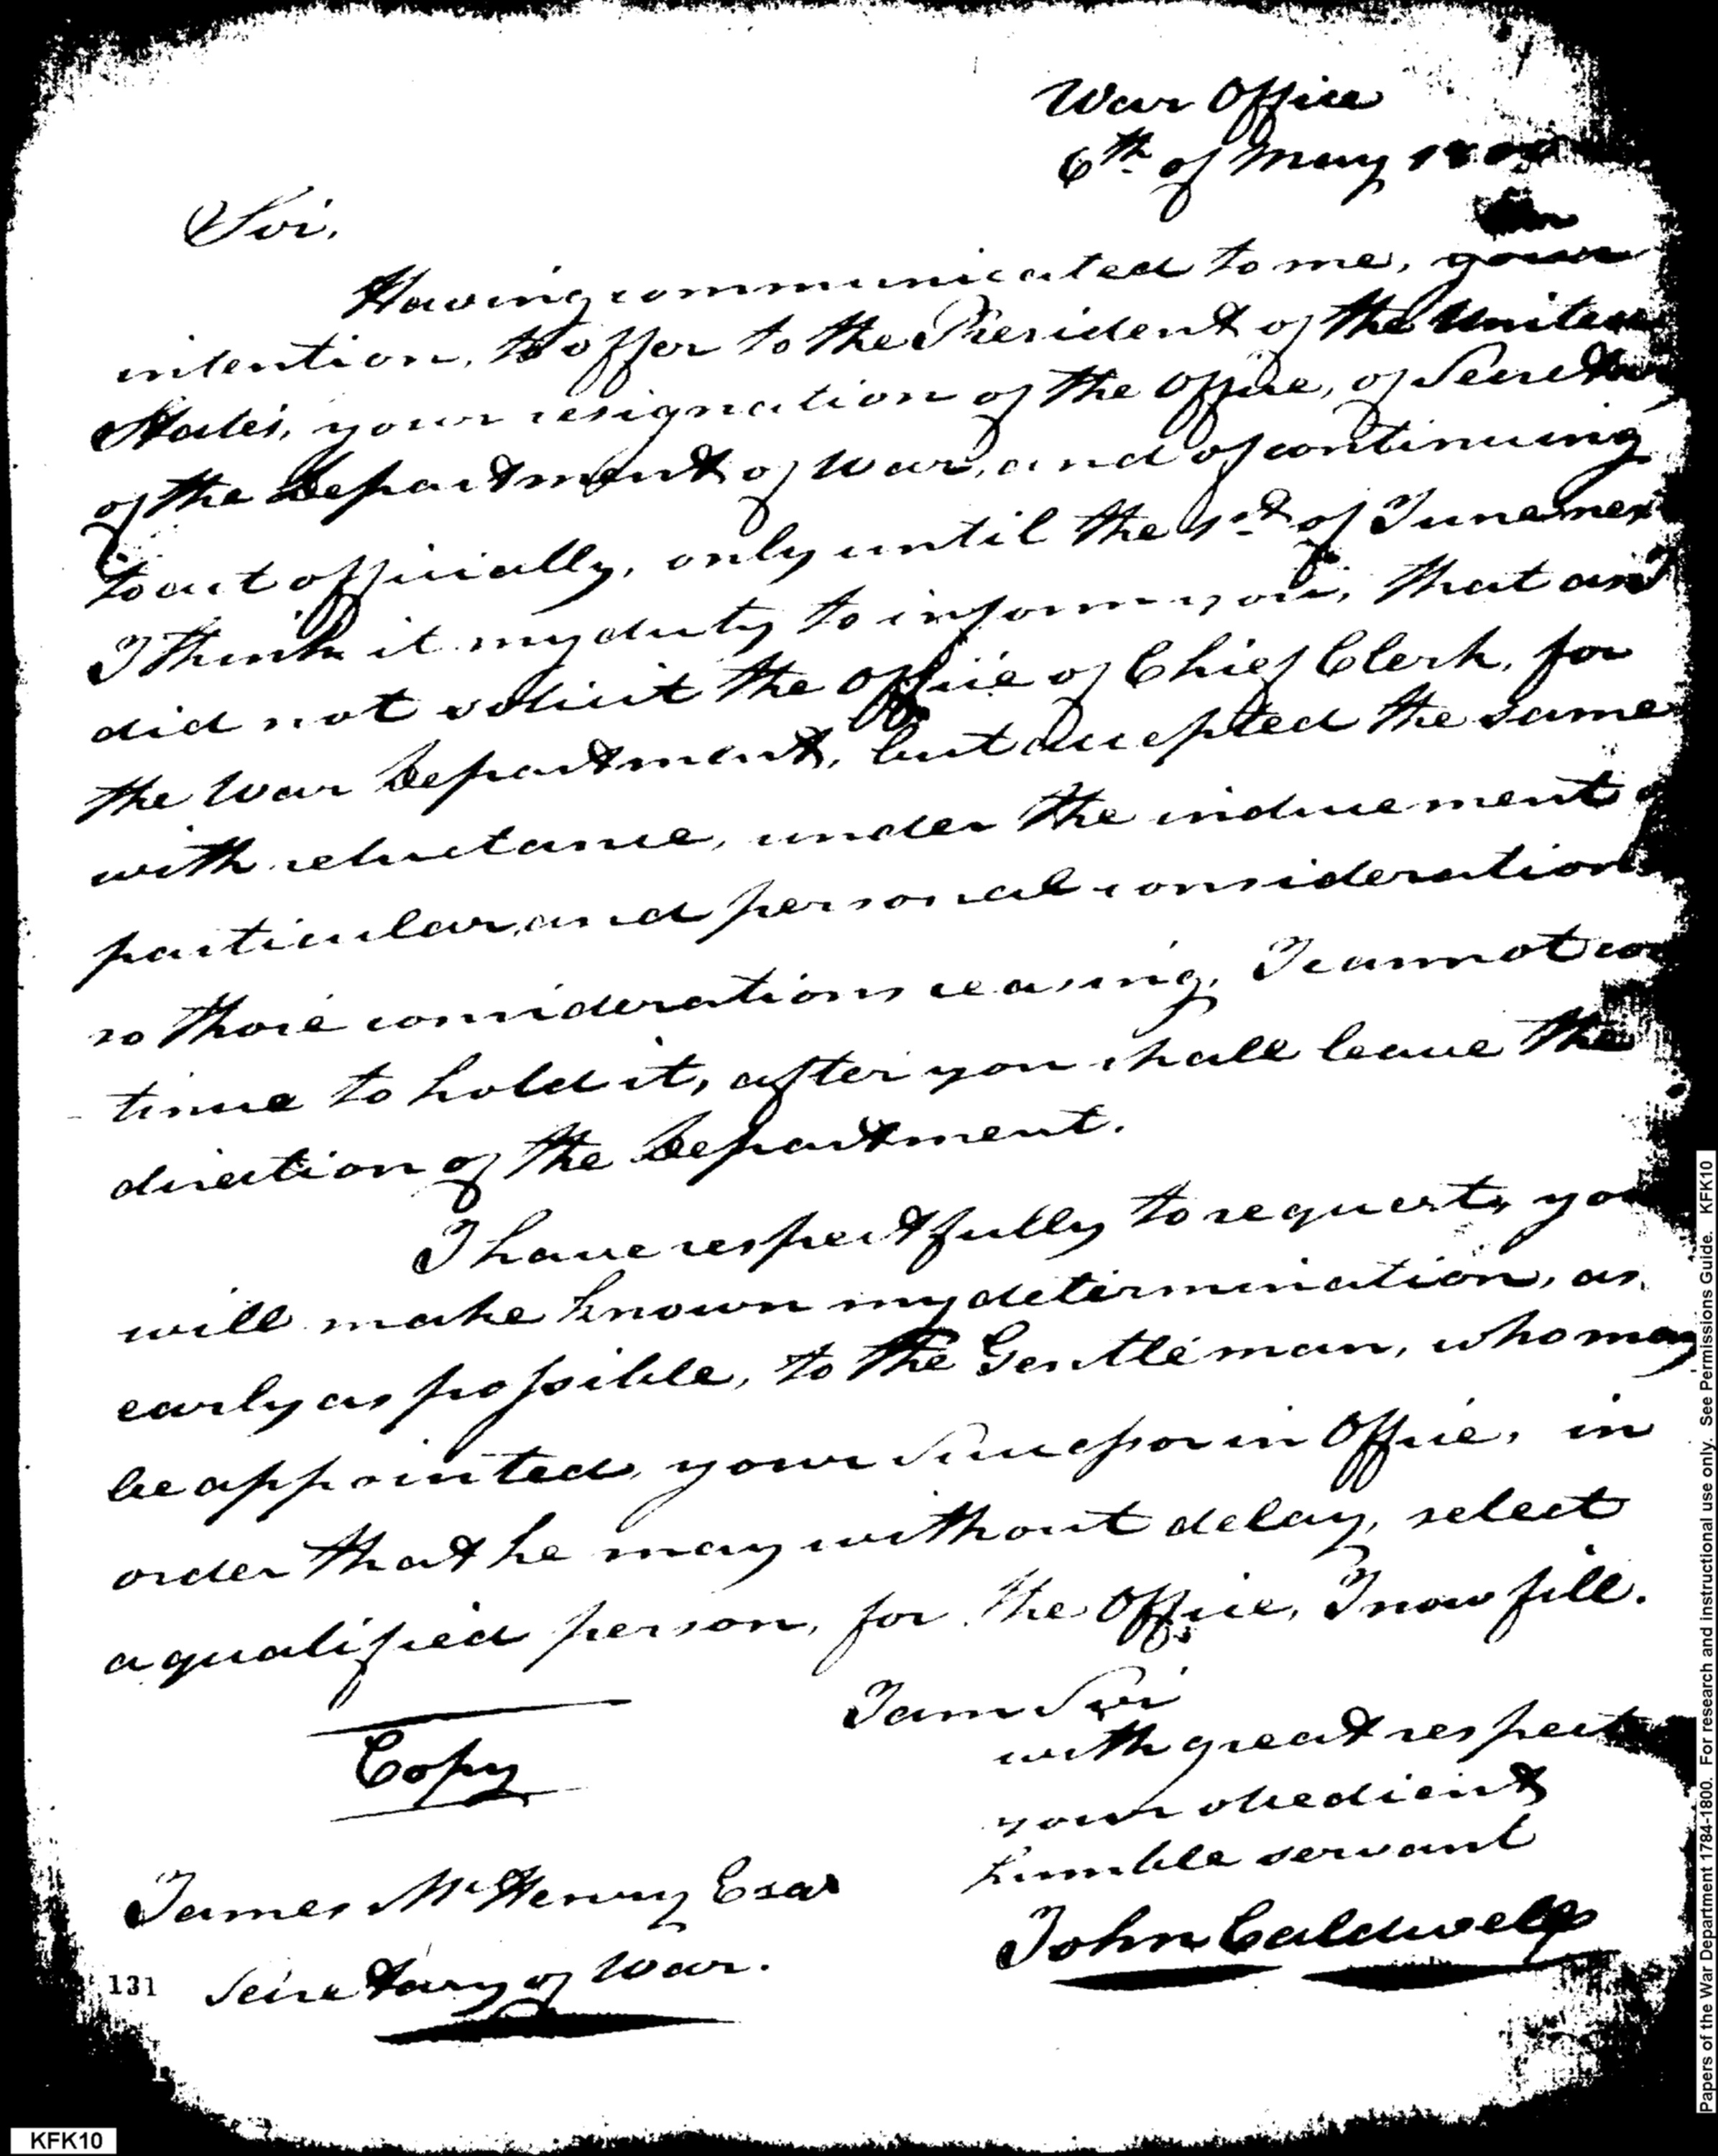 War Office
6th of May 1800
Sir,
Having communicated to me, your
intention, to offer to the President of the United
States, your resignation of the Office, of Secretary
of the Department of War, and of continuing
to act officially, only until the 1st of June nex
I think it my duty to inform you, that as I
did not solicit the Office of Chief Clerk, for
the War Department, but accepted the same
with reluctance, under the inducement of
particular, and personal considerations
so those considerations ceasing, I cannot con
tinue to hold it, after you shall leave the
direction of the Department.
I have respectfully to request, you
will make known my determination, as
early as possible, to the Gentleman, who may
be appointed, your Successor in Office, in
order that he may without delay, select
a qualified person, for the Office, I now fill.
I am Sir
with great respect
your obedient
humble servant
John Caldwell
Copy
James McHenry Esqr
Secretary of War.
131
KFK10
Papers of the War Department 1784-1800. For research and instructional use only. See Permissions Guide. KFK10